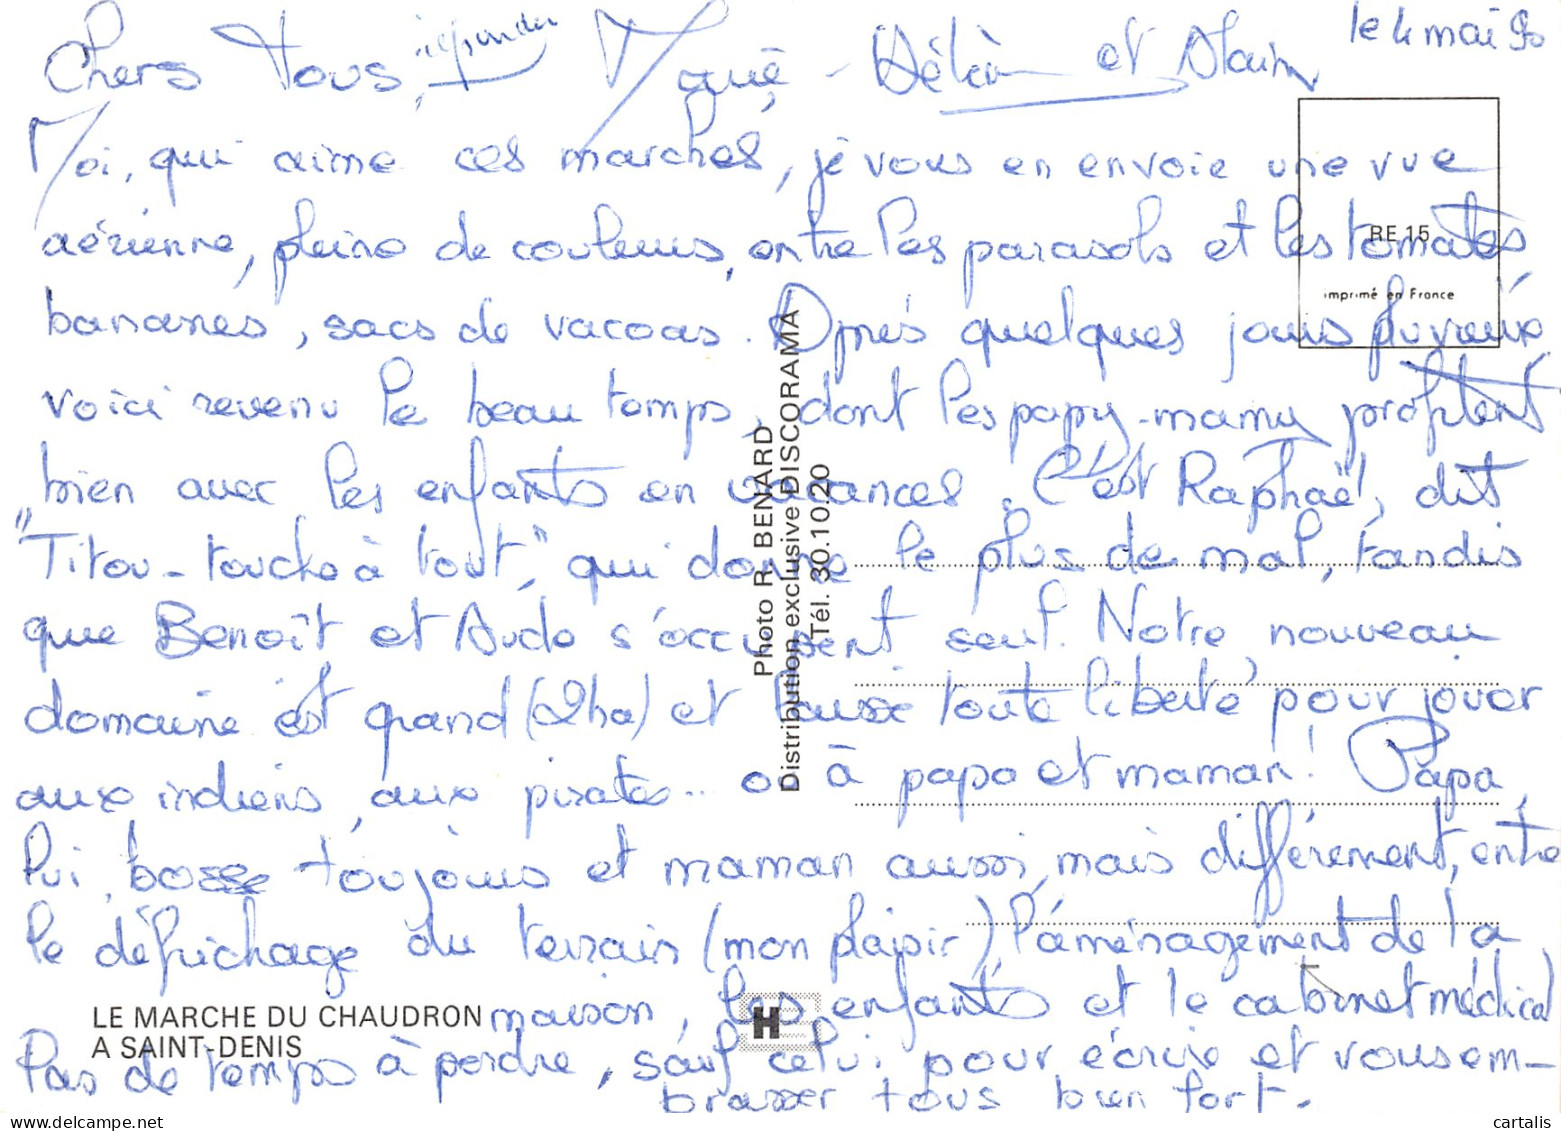 le 4 mai 90
Chers Tous, répondu Maïté - Hélèn et Alain
Moi, qui aime ces marchés, je vous en envoie une vue
aérienne, pleine de couleurs, entre les parasols et les tomates
bananes, sacs de vacoas. Après quelques jours pluvieux
voici revenu le beau temps, dont les papy-mamy profitent
bien avec les enfants en vacances. C'est Raphaël, dit
"Titou-touche à tout," qui donne le plus de mal, tandis
que Benoît et Aude s'occupent seul. Notre nouveau
domaine est grand (2ha) et laisse toute liberté pour jouer
aux indiens, aux pirates... ou à papa et maman! Papa,
lui, bosse toujours et maman aussi, mais différemment, entre
le défrichage du terrain (mon plaisir), l'aménagement de la
maison, les enfants et le cabinet médical
Pas de temps à perdre, sauf celui pour écrire et vous em-
brasser tous bien fort.
RE 15
Imprimé en France
Photo R. BENARD
Distribution exclusive DISCORAMA
Tél. 30.10.20
H
LE MARCHE DU CHAUDRON
A SAINT-DENIS
www.delcampe.net
cartalis